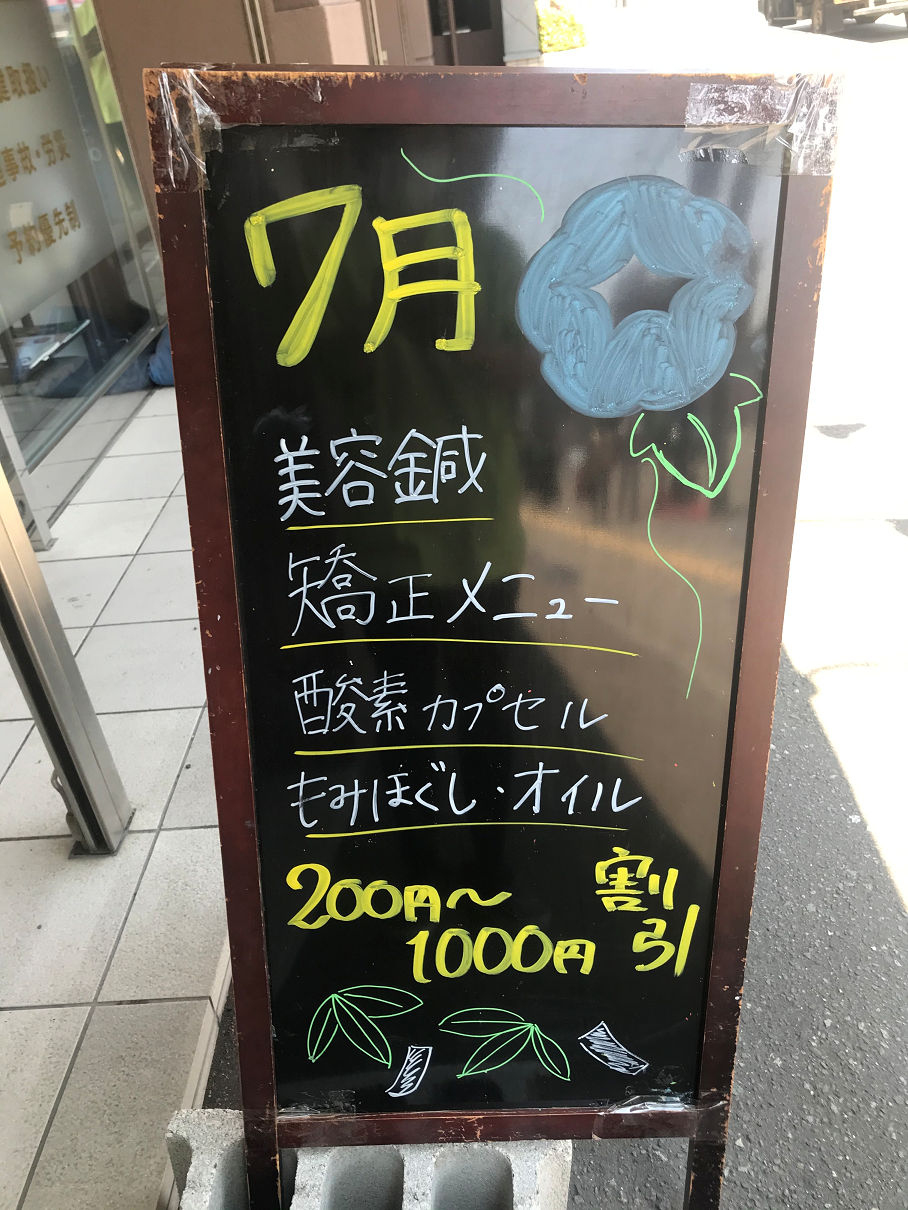 7月
美容鍼
矯正メニュー
酸素カプセル
もみほぐし・オイル
200円～
1000円
割引
取扱い
事故・労災
予約優先制